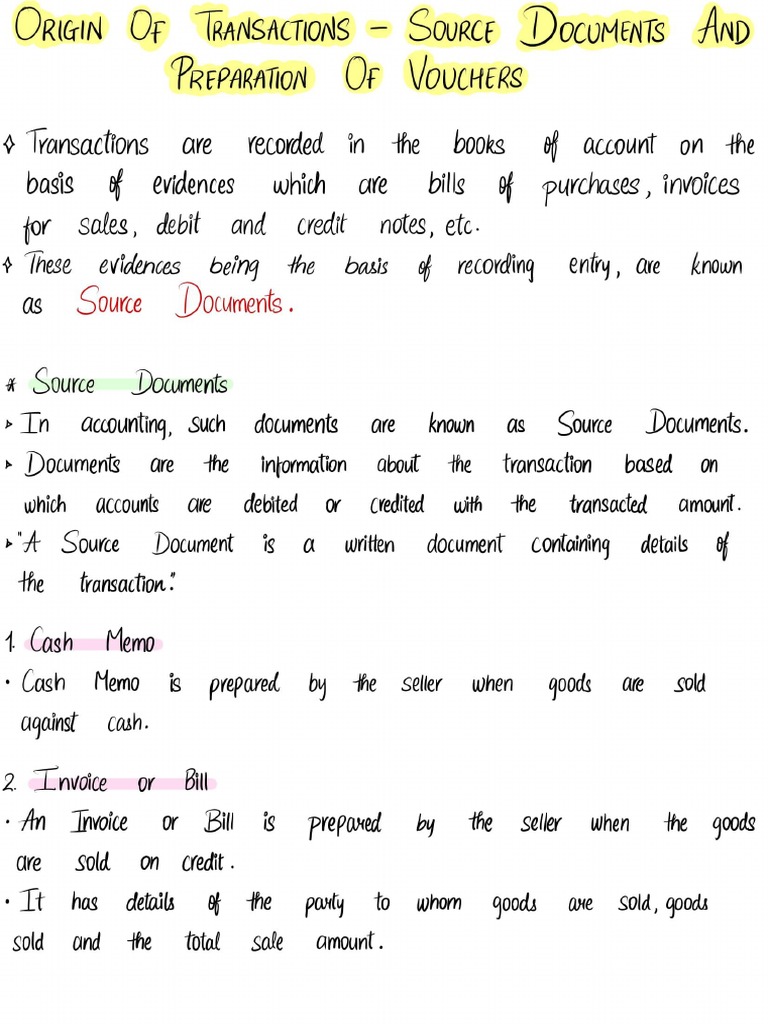 ORIGIN OF TRANSACTIONS – SOURCE DOCUMENTS AND
PREPARATION OF VOUCHERS
✧ Transactions are recorded in the books of account on the
basis of evidences which are bills of purchases, invoices
for sales, debit and credit notes, etc.
✧ These evidences being the basis of recording entry, are known
as Source Documents.
* Source Documents
▸ In accounting, such documents are known as Source Documents.
▸ Documents are the information about the transaction based on
which accounts are debited or credited with the transacted amount.
▸ "A Source Document is a written document containing details of
the transaction."
1. Cash Memo
• Cash Memo is prepared by the seller when goods are sold
against cash.
2. Invoice or Bill
• An Invoice or Bill is prepared by the seller when the goods
are sold on credit.
• It has details of the party to whom goods are sold, goods
sold and the total sale amount.